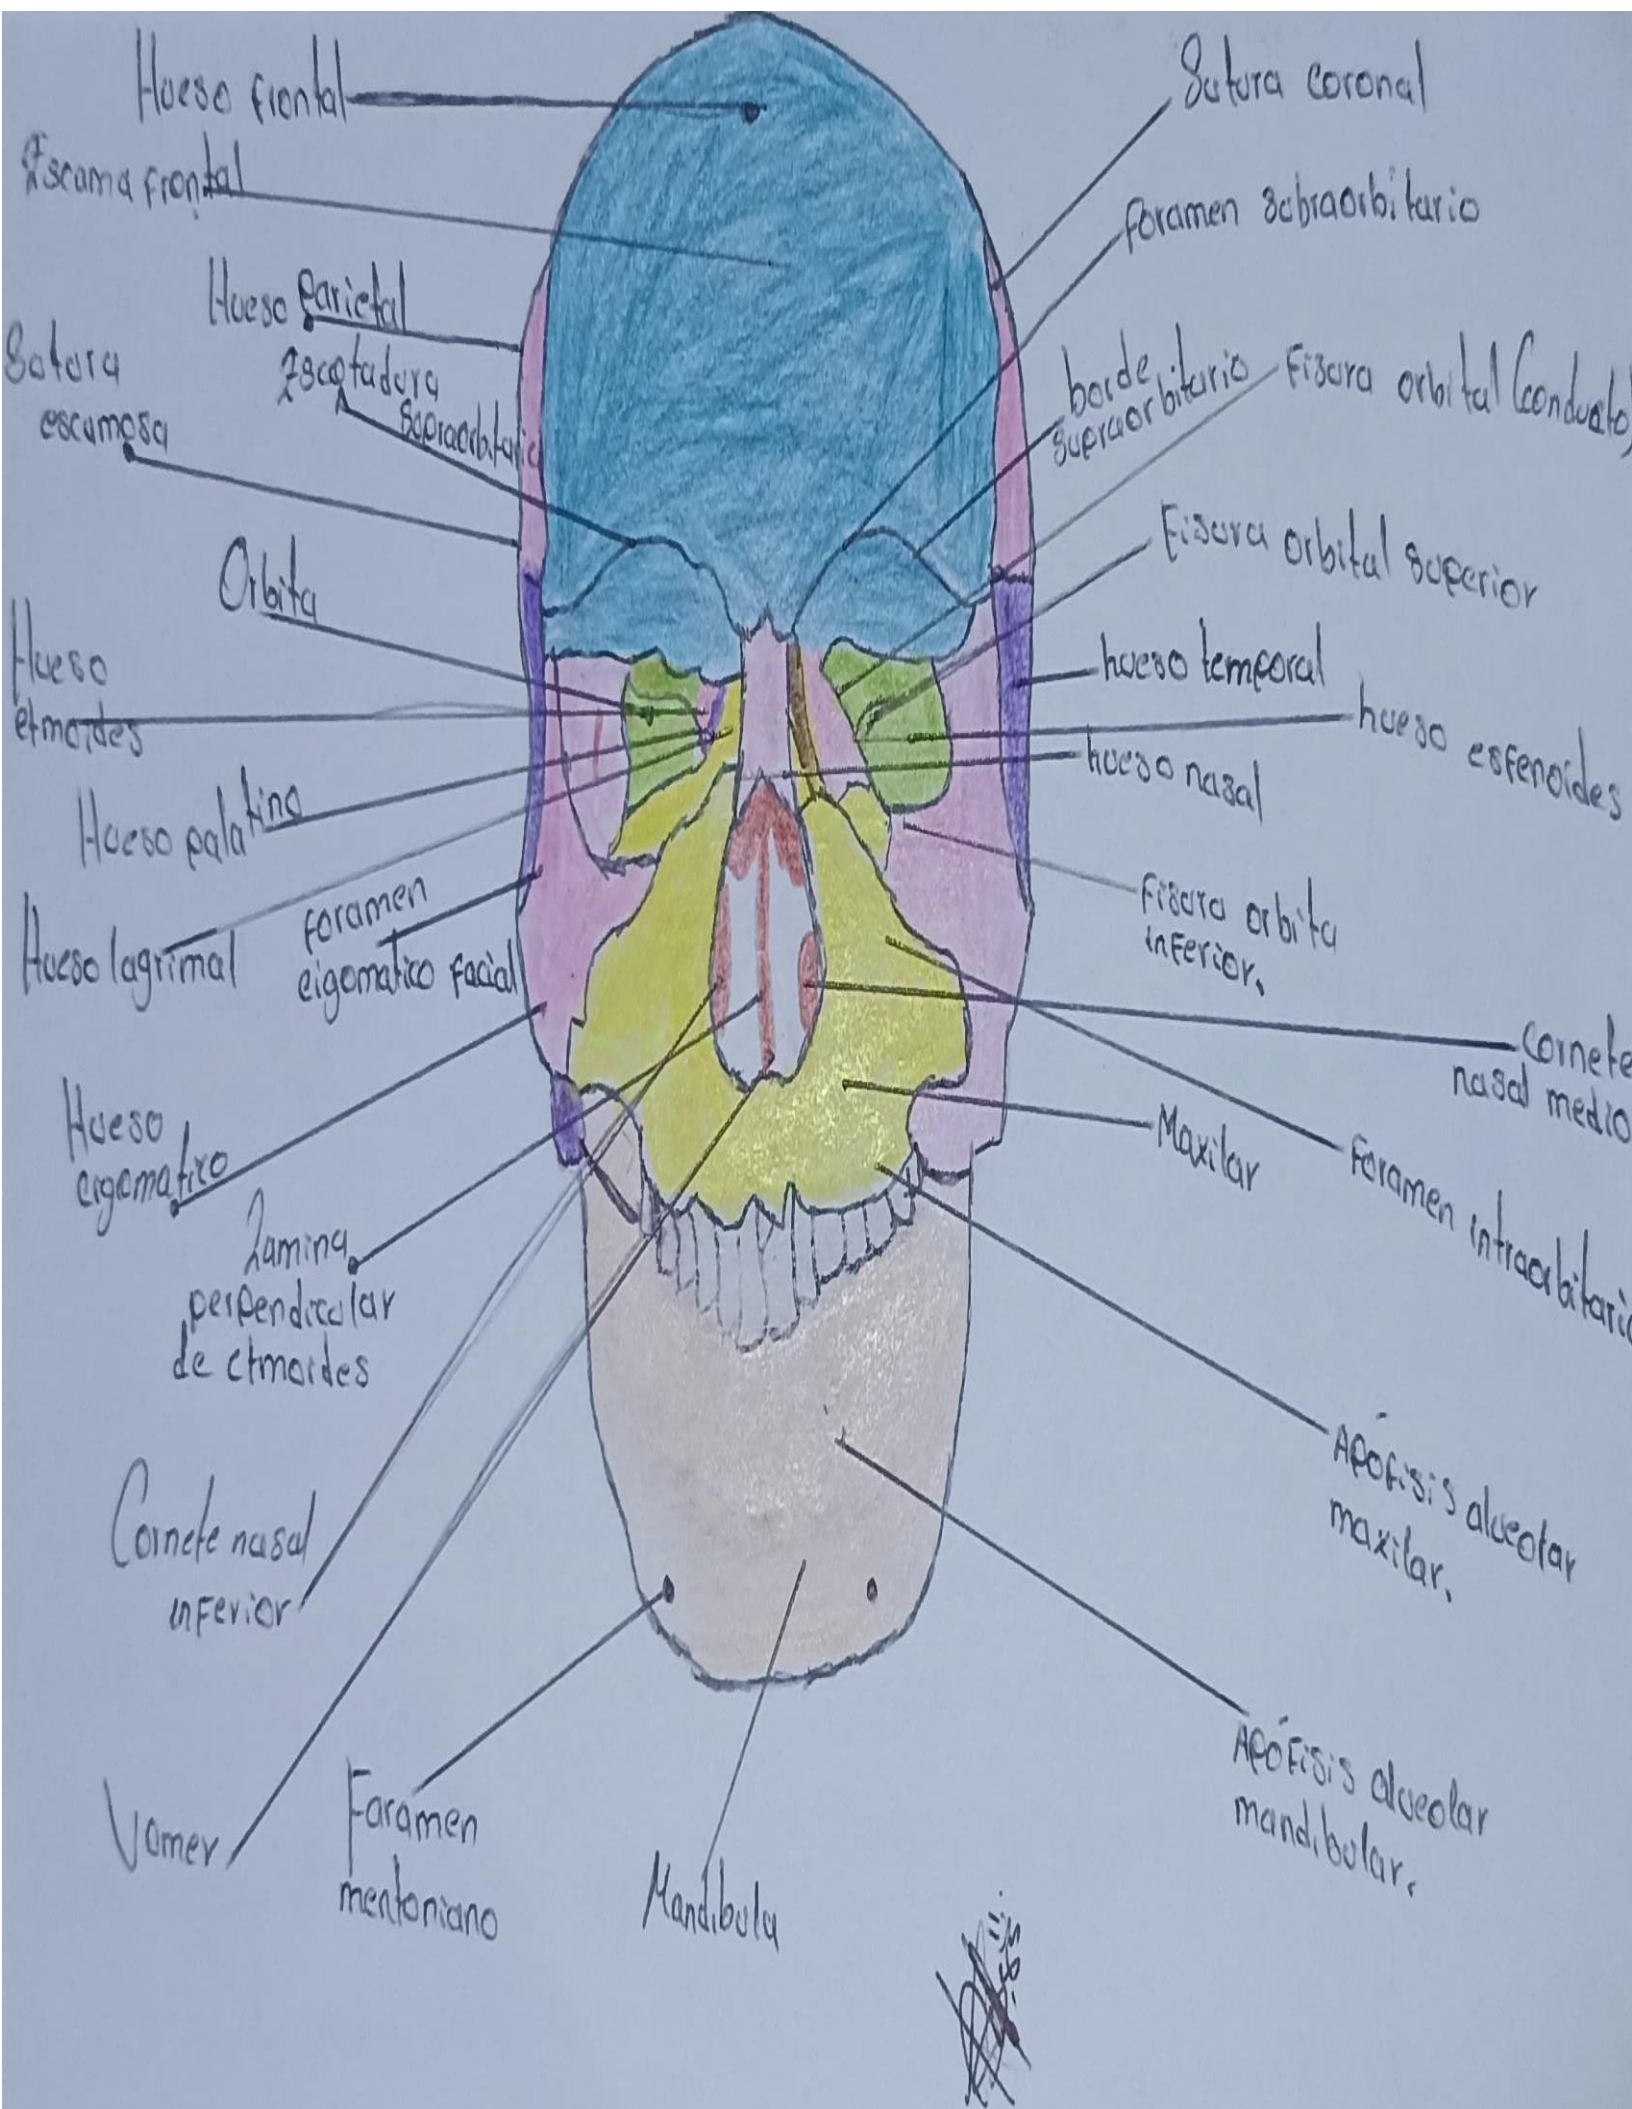 Hueso frontal
Escama frontal
Hueso Parietal
Sotura
escamosa
Escotadura
Sopraorbitario
Orbita
Hueso
etmoides
Hueso palatino
Hueso lagrimal
foramen
eigomatico facial
Hueso
eigomatico
Lamina
perpendicular
de etmoides
Cornete nasal
inferior
Vomer
Faramen
mentoniano
Mandibula
Sutura coronal
foramen sobraorbitario
borde
supraorbitario
Fisura orbital (conducto)
Fisura orbital superior
hueso temporal
hueso esfenoides
hueso nasal
Fisura orbita
inferior.
Cornete
nasal medio
Maxilar
Foramen intraorbitario
APófisis alveolar
maxilar.
APófisis alveolar
mandibular.